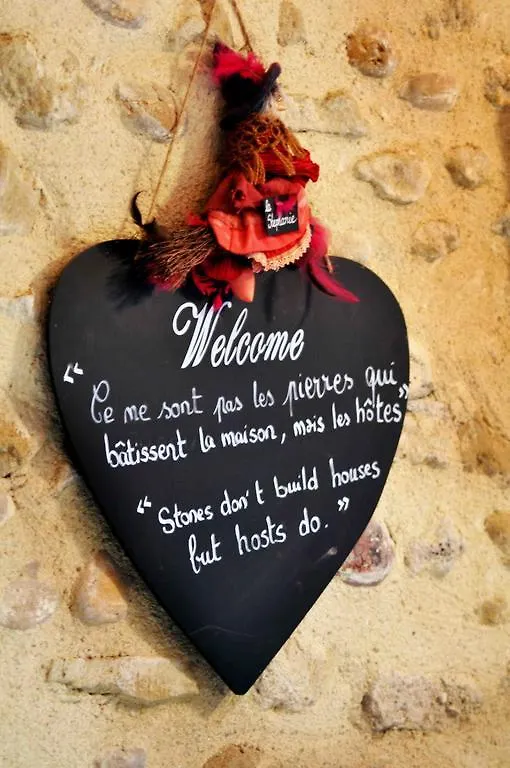 la
Stephanie
Welcome
“ Ce ne sont pas les pierres qui
bâtissent la maison, mais les hôtes”
“ Stones don't build houses
but hosts do. ”